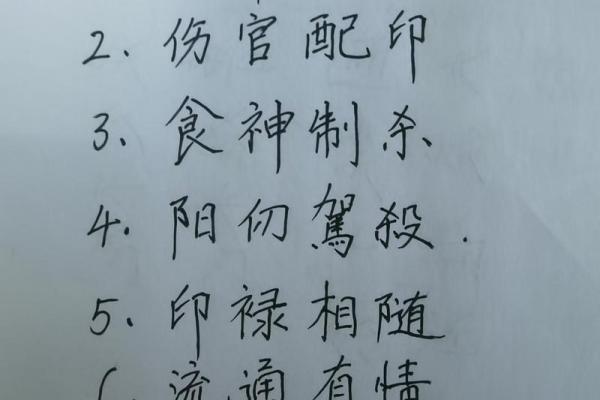 2. 伤官配印
3. 食神制杀
4. 阳仞駕殺.
5. 印禄相随
6. 流通有情